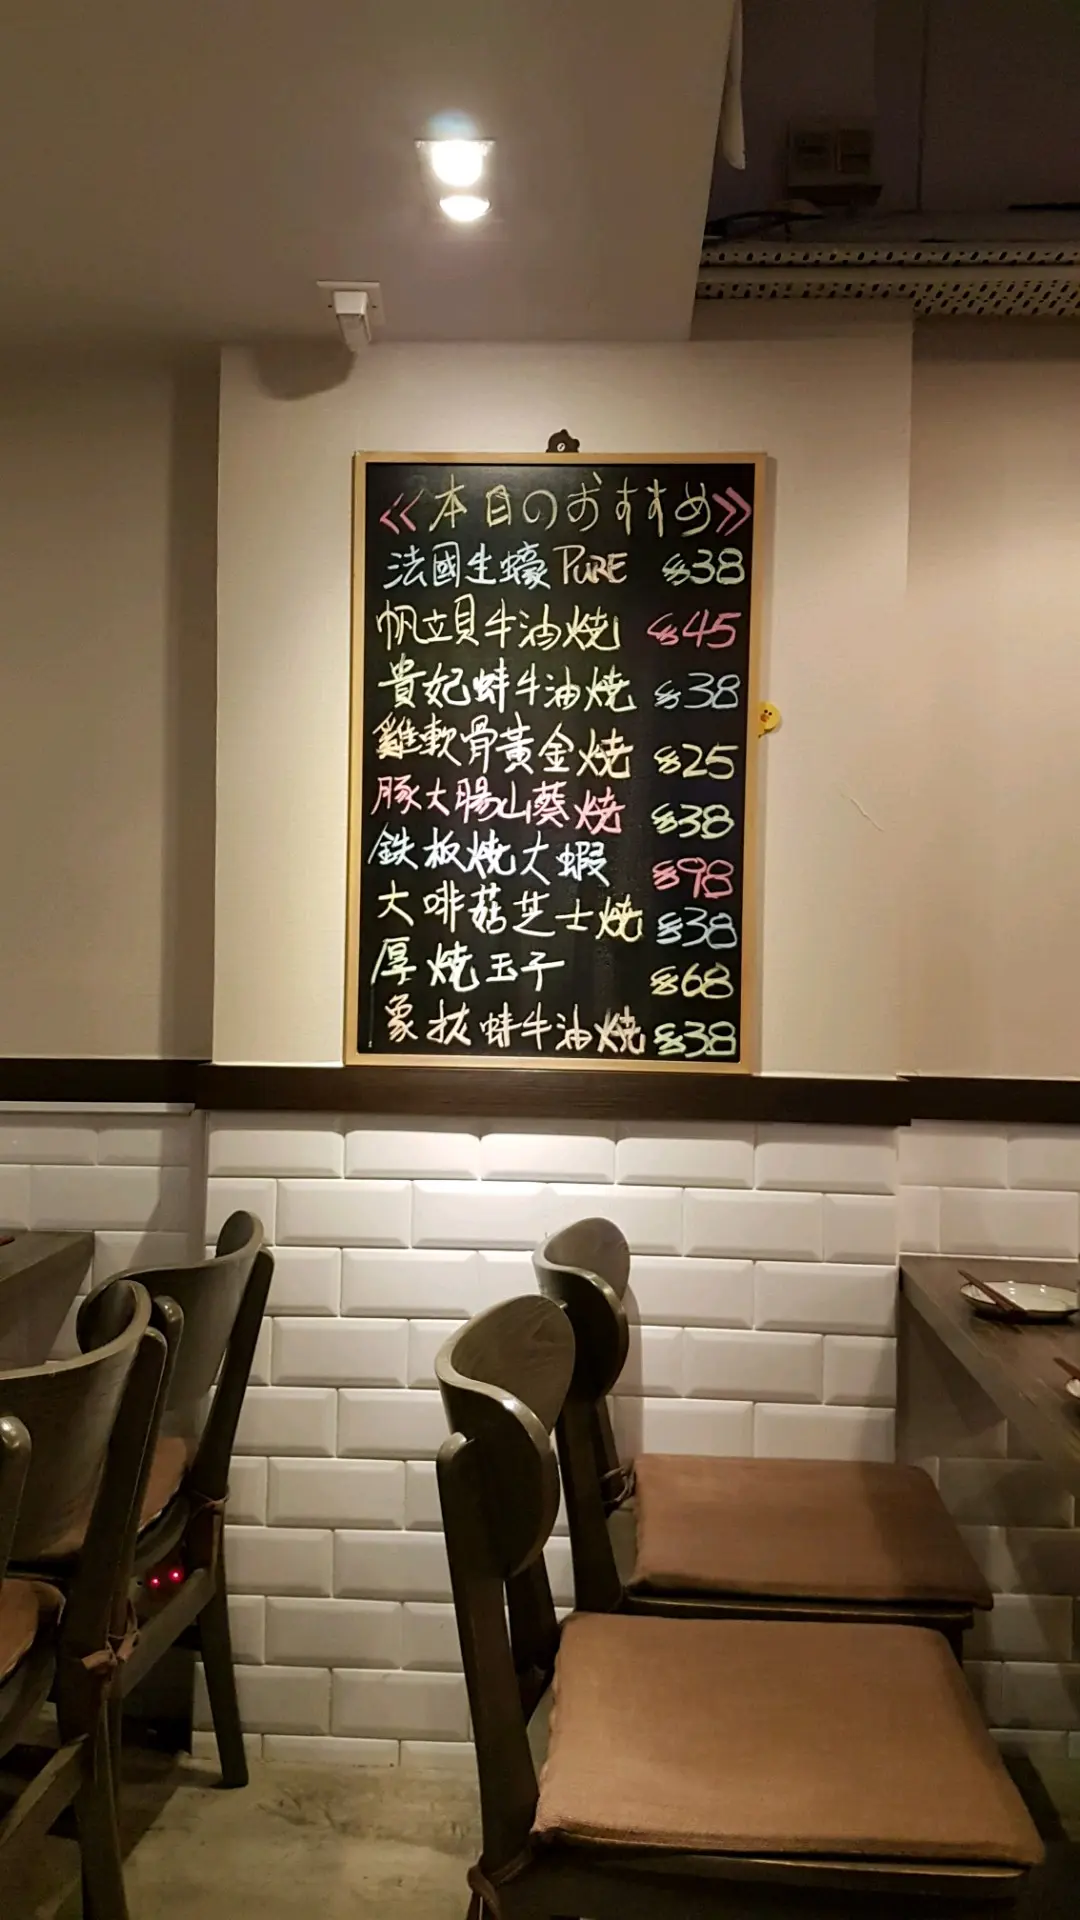 《本日のおすすめ》
法國生蠔 PURE $38
帆立貝牛油燒 $45
貴妃蚌牛油燒 $38
雞軟骨黃金燒 $25
豚大腸山葵燒 $38
鉄板燒大蝦 $98
大啡菇芝士燒 $38
厚燒玉子 $68
象拔蚌牛油燒 $38